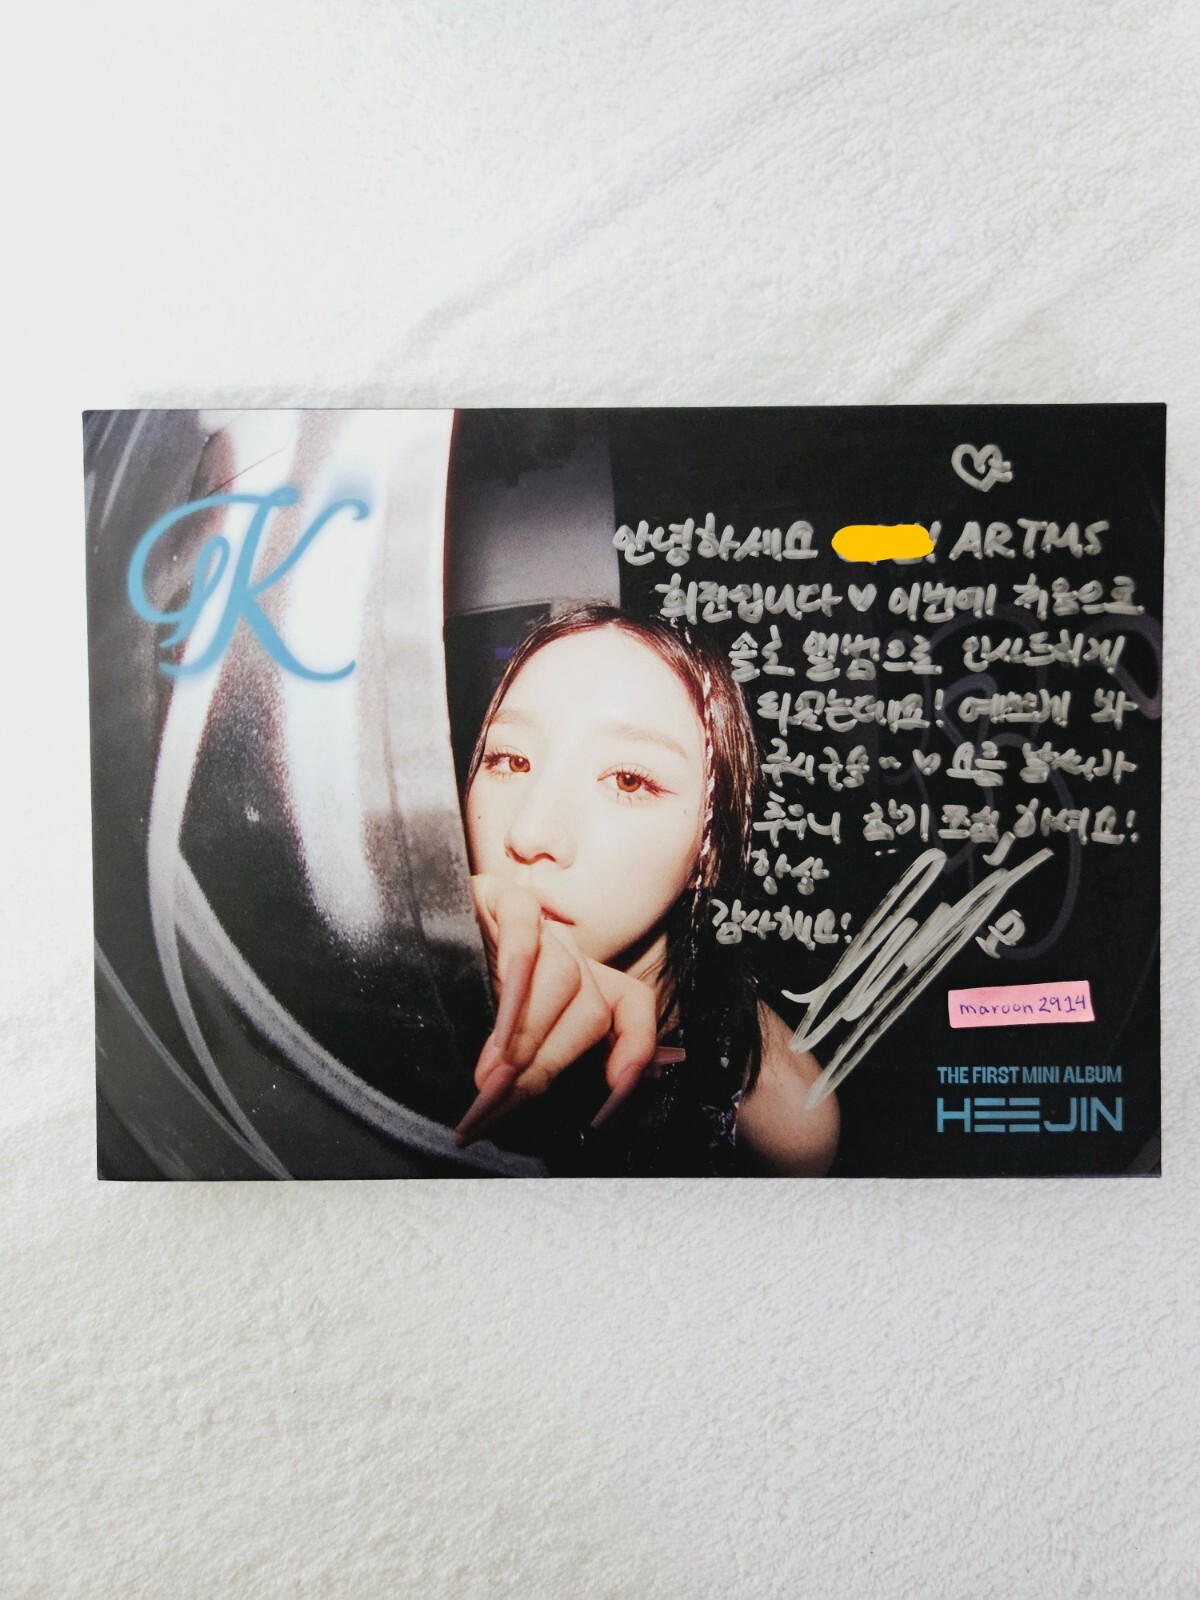 K
안녕하세요 ARTMS
희진입니다♥ 이번에 처음으로
솔로 앨범으로 인사드리게
되었는데요! 예쁘게 봐
주시구용~ ♥ 요즘 날씨가
추우니 감기 조심 하세요!
항상
감사해요!
maroon2914
THE FIRST MINI ALBUM
HEEJIN